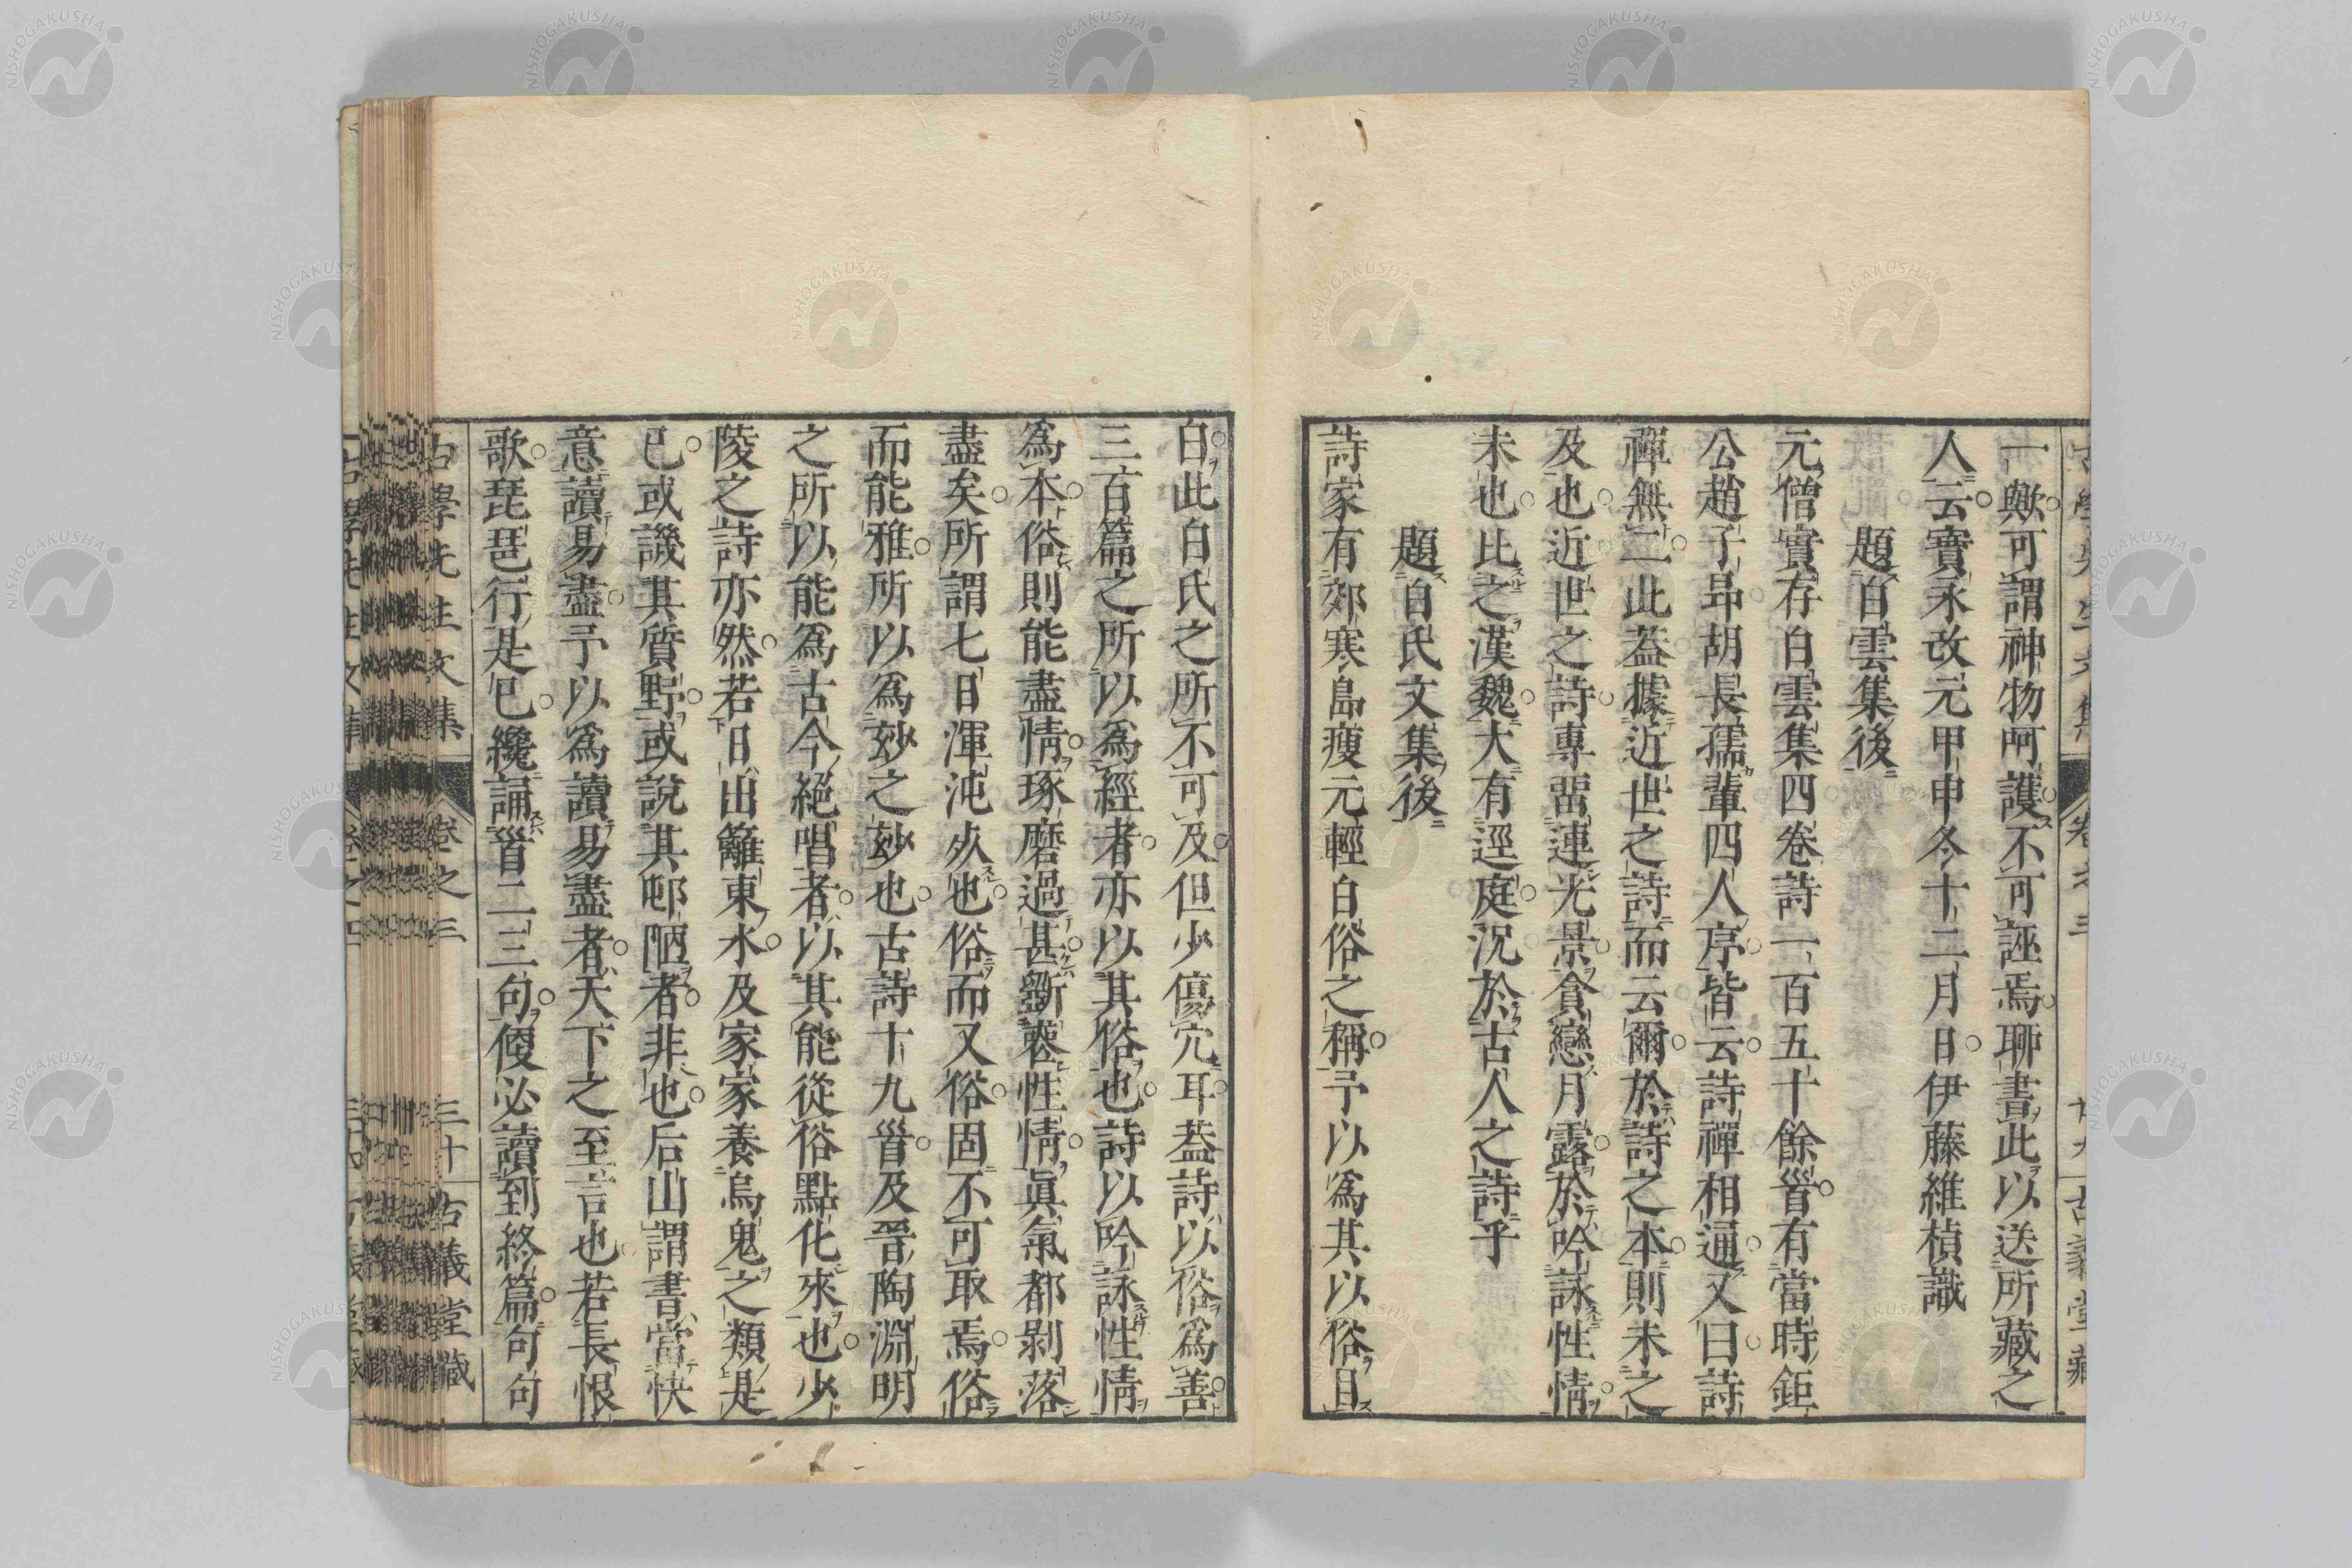 一歟可謂神物呵護不可誣焉聊書此以送所藏之
人云寶永改元甲申冬十二月日伊藤維楨識
題白雲集後
元僧實存白雲集四卷詩一百五十餘首有當時鉅
公趙子昂胡長孺輩四人序皆云詩禪相通又曰詩
禪無二此葢據近世之詩而云爾於詩之本則未之
及也近世之詩專畱連光景貪戀月露於吟詠性情
未也比之漢魏大有逕庭況於古人之詩乎
題白氏文集後
詩家有郊寒島瘦元輕白俗之稱予以爲其以俗目
白此白氏之所不可及但少傷冗耳葢詩以俗爲善
三百篇之所以爲經者亦以其俗也詩以吟詠性情
爲本俗則能盡情琢磨過甚斲喪性情眞氣都剝落
盡矣所謂七日渾沌死也俗而又俗固不可取焉俗
而能雅所以爲妙之妙也古詩十九首及晉陶淵明
之所以能爲古今絕唱者以其能從俗點化來也少
陵之詩亦然若日出籬東水及家家養烏鬼之類是
已或譏其質野或說其鄙陋者非也后山謂書當快
意讀易盡予以爲讀易盡者天下之至言也若長恨
歌琵琶行是已纔誦首二三句便必讀到終篇句句
古學先生文集 卷之三 三十 古義堂藏
NISHOGAKUSHA